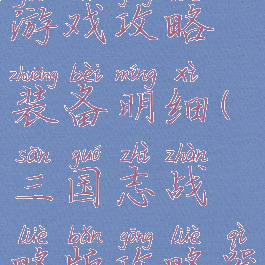 游戏攻略
zhuāng bèi míng xì
装备明细(
sān guó zhì zhàn
三国志战
lüè bǎn gōng lüè qì
略版攻略